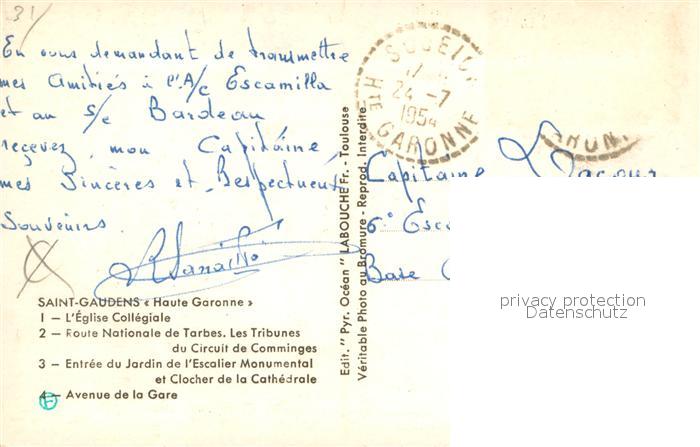 31
En vous demandant de transmettre
mes Amitiés à l'A/c Escamilla
et au S/c Bardeau
recevez, mon Capitaine,
mes Sincères et Respectueux
Souvenirs.
SAINT-GAUDENS « Haute Garonne »
1 — L'Église Collégiale
2 — Route Nationale de Tarbes. Les Tribunes
du Circuit de Comminges
3 — Entrée du Jardin de l'Escalier Monumental
et Clocher de la Cathédrale
4 — Avenue de la Gare
Edit. "Pyr. Océan" LABOUCHE Fr. - Toulouse
Véritable Photo au Bromure - Reprod. Interdite
24 -7
1954
HTE GARONNE
Capitaine
6e Esc
Base
privacy protection
Datenschutz